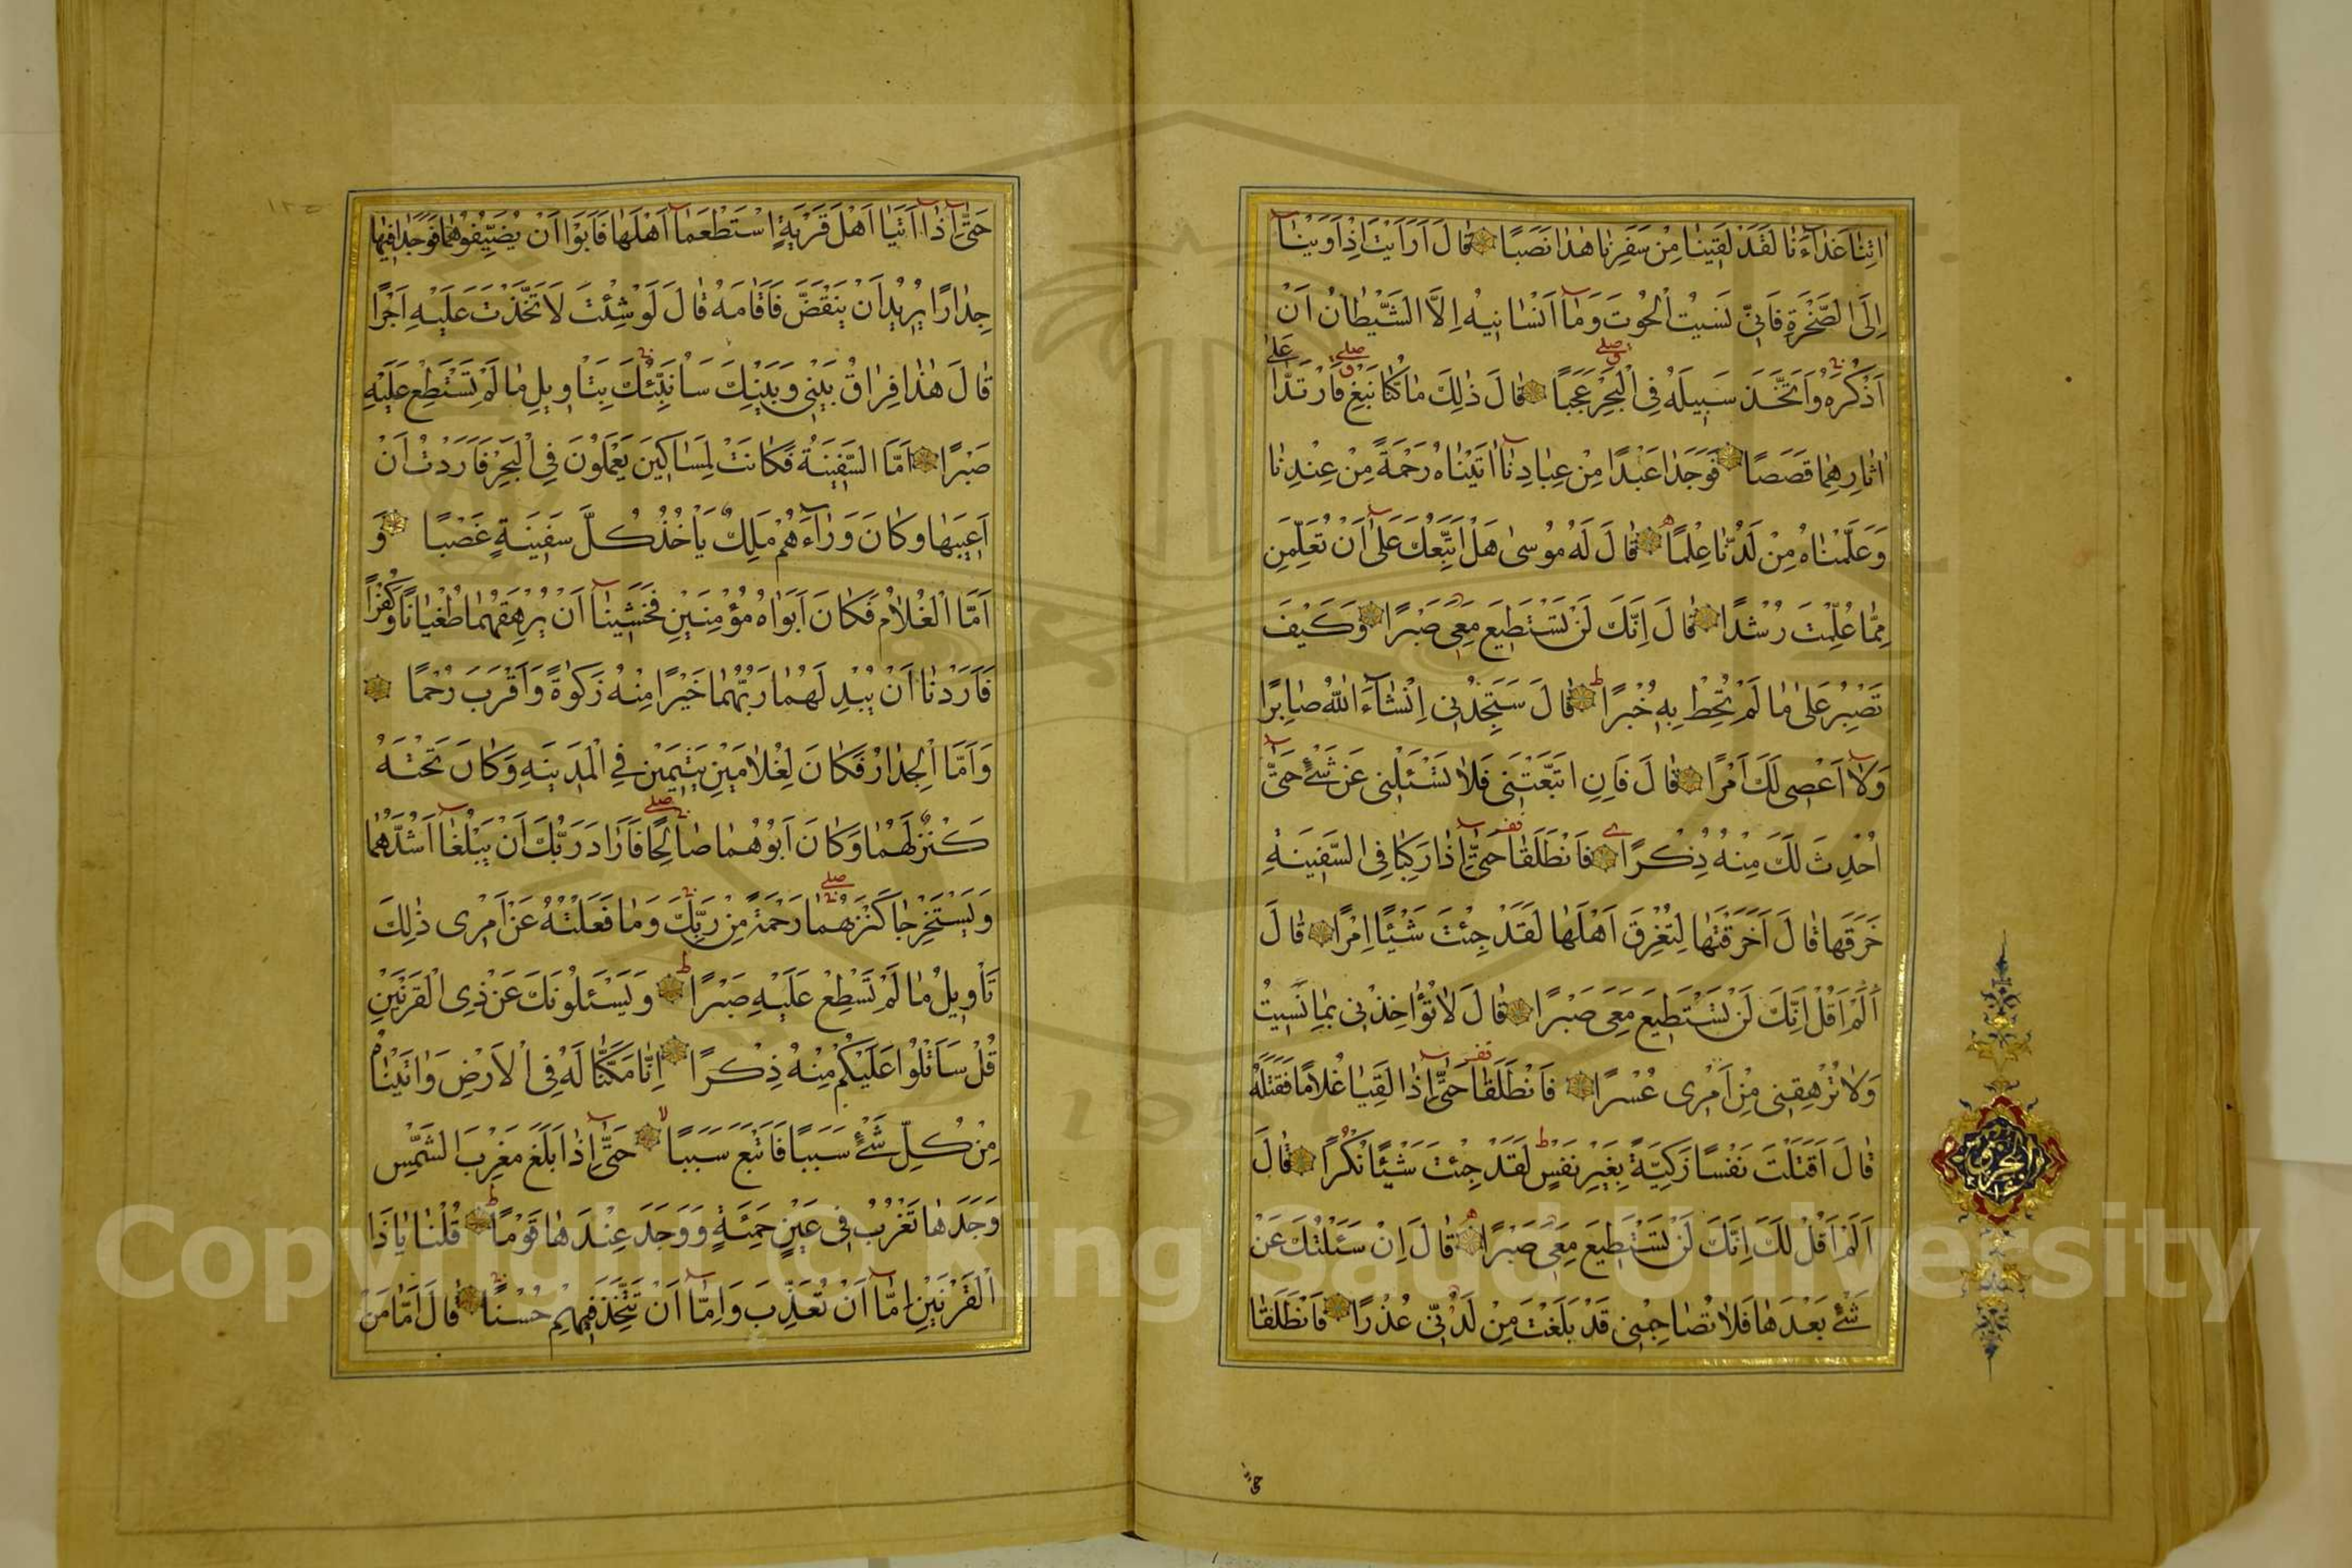 اٰتِنٰا غَدٰآءَنٰا لَقَدْ لَقِينٰا مِنْ سَفَرِنٰا هٰذٰا نَصَبًا قٰالَ اَرَاَيْتَ اِذْ اَوَيْنٰآ
اِلَى الصَّخْرَةِ فَاِنِّى نَسِيتُ الْحُوتَ وَمٰآ اَنْسٰانِيهُ اِلَّا الشَّيْطٰانُ اَنْ
اَذْكُرَهُ وَاتَّخَذَ سَبِيلَهُ فِى الْبَحْرِ عَجَبًا قٰالَ ذٰلِكَ مٰا كُنّٰا نَبْغِ فَارْتَدّٰا عَلىٰ
اٰثٰارِهِمٰا قَصَصًا فَوَجَدٰا عَبْدًا مِنْ عِبٰادِنٰآ اٰتَيْنٰاهُ رَحْمَةً مِنْ عِنْدِنٰا
وَعَلَّمْنٰاهُ مِنْ لَدُنّٰا عِلْمًا قٰالَ لَهُ مُوسىٰ هَلْ اَتَّبِعُكَ عَلىٰٓ اَنْ تُعَلِّمَنِ
مِمّٰا عُلِّمْتَ رُشْدًا قٰالَ اِنَّكَ لَنْ تَسْتَطِيعَ مَعِىَ صَبْرًا وَكَيْفَ
تَصْبِرُ عَلىٰ مٰا لَمْ تُحِطْ بِهِ خُبْرًا قٰالَ سَتَجِدُنِى اِنْشٰآءَ اللّٰهُ صٰابِرًا
وَلٰآ اَعْصِى لَكَ اَمْرًا قٰالَ فَاِنِ اتَّبَعْتَنِى فَلٰا تَسْئَلْنِى عَنْ شَىْءٍ حَتّٰىٓ
اُحْدِثَ لَكَ مِنْهُ ذِكْرًا فَانْطَلَقٰا حَتّٰىٓ اِذٰا رَكِبٰا فِى السَّفِينَةِ
خَرَقَهٰا قٰالَ اَخَرَقْتَهٰا لِتُغْرِقَ اَهْلَهٰا لَقَدْ جِئْتَ شَيْئًا اِمْرًا قٰالَ
اَلَمْ اَقُلْ اِنَّكَ لَنْ تَسْتَطِيعَ مَعِىَ صَبْرًا قٰالَ لٰا تُؤٰاخِذْنِى بِمٰا نَسِيتُ
وَلٰا تُرْهِقْنِى مِنْ اَمْرِى عُسْرًا فَانْطَلَقٰا حَتّٰىٓ اِذٰا لَقِيٰا غُلٰامًا فَقَتَلَهُ
قٰالَ اَقَتَلْتَ نَفْسًا زَكِيَّةً بِغَيْرِ نَفْسٍ لَقَدْ جِئْتَ شَيْئًا نُكْرًا قٰالَ
اَلَمْ اَقُلْ لَكَ اِنَّكَ لَنْ تَسْتَطِيعَ مَعِىَ صَبْرًا قٰالَ اِنْ سَئَلْتُكَ عَنْ
شَىْءٍ بَعْدَهٰا فَلٰا تُصٰاحِبْنِى قَدْ بَلَغْتَ مِنْ لَدُنِّى عُذْرًا فَانْطَلَقٰا
حَتّٰىٓ اِذٰآ اَتَيٰآ اَهْلَ قَرْيَةٍ اسْتَطْعَمٰآ اَهْلَهٰا فَاَبَوْا اَنْ يُضَيِّفُوهُمٰا فَوَجَدٰا فِيهٰا
جِدٰارًا يُرِيدُ اَنْ يَنْقَضَّ فَاَقٰامَهُ قٰالَ لَوْ شِئْتَ لَاتَّخَذْتَ عَلَيْهِ اَجْرًا
قٰالَ هٰذٰا فِرٰاقُ بَيْنِى وَبَيْنِكَ سَاُنَبِّئُكَ بِتَاْوِيلِ مٰا لَمْ تَسْتَطِعْ عَلَيْهِ
صَبْرًا اَمَّا السَّفِينَةُ فَكٰانَتْ لِمَسٰاكِينَ يَعْمَلُونَ فِى الْبَحْرِ فَاَرَدْتُ اَنْ
اَعِيبَهٰا وَكٰانَ وَرٰآءَهُمْ مَلِكٌ يَاْخُذُ كُلَّ سَفِينَةٍ غَصْبًا وَ
اَمَّا الْغُلٰامُ فَكٰانَ اَبَوٰاهُ مُؤْمِنَيْنِ فَخَشِينٰآ اَنْ يُرْهِقَهُمٰا طُغْيٰانًا وَكُفْرًا
فَاَرَدْنٰا اَنْ يُبْدِلَهُمٰا رَبُّهُمٰا خَيْرًا مِنْهُ زَكٰوةً وَاَقْرَبَ رُحْمًا
وَاَمَّا الْجِدٰارُ فَكٰانَ لِغُلٰامَيْنِ يَتِيمَيْنِ فِى الْمَدِينَةِ وَكٰانَ تَحْتَهُ
كَنْزٌ لَهُمٰا وَكٰانَ اَبُوهُمٰا صٰالِحًا فَاَرٰادَ رَبُّكَ اَنْ يَبْلُغٰآ اَشُدَّهُمٰا
وَيَسْتَخْرِجٰا كَنْزَهُمٰا رَحْمَةً مِنْ رَبِّكَ وَمٰا فَعَلْتُهُ عَنْ اَمْرِى ذٰلِكَ
تَاْوِيلُ مٰا لَمْ تَسْطِعْ عَلَيْهِ صَبْرًا وَيَسْئَلُونَكَ عَنْ ذِى الْقَرْنَيْنِ
قُلْ سَاَتْلُوا عَلَيْكُمْ مِنْهُ ذِكْرًا اِنّٰا مَكَّنّٰا لَهُ فِى الْاَرْضِ وَاٰتَيْنٰاهُ
مِنْ كُلِّ شَىْءٍ سَبَبًا فَاَتْبَعَ سَبَبًا حَتّٰىٓ اِذٰا بَلَغَ مَغْرِبَ الشَّمْسِ
وَجَدَهٰا تَغْرُبُ فِى عَيْنٍ حَمِئَةٍ وَوَجَدَ عِنْدَهٰا قَوْمًا قُلْنٰا يٰا ذَا
الْقَرْنَيْنِ اِمّٰآ اَنْ تُعَذِّبَ وَاِمّٰآ اَنْ تَتَّخِذَ فِيهِمْ حُسْنًا قٰالَ اَمّٰا مَنْ
Copyright © King Saud University